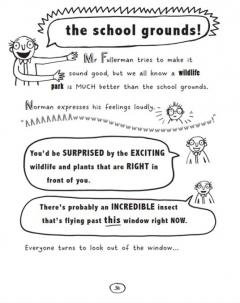 the school grounds!
Mr Fullerman tries to make it
sound good, but we all know a wildlife
park is MUCH better than the school grounds.
Norman expresses his feelings loudly.
You'd be SURPRISED by the EXCITING
wildlife and plants that are RIGHT in
front of you.
There's probably an INCREDIBLE insect
that's flying past this window right NOW.
Everyone turns to look out of the window...
36